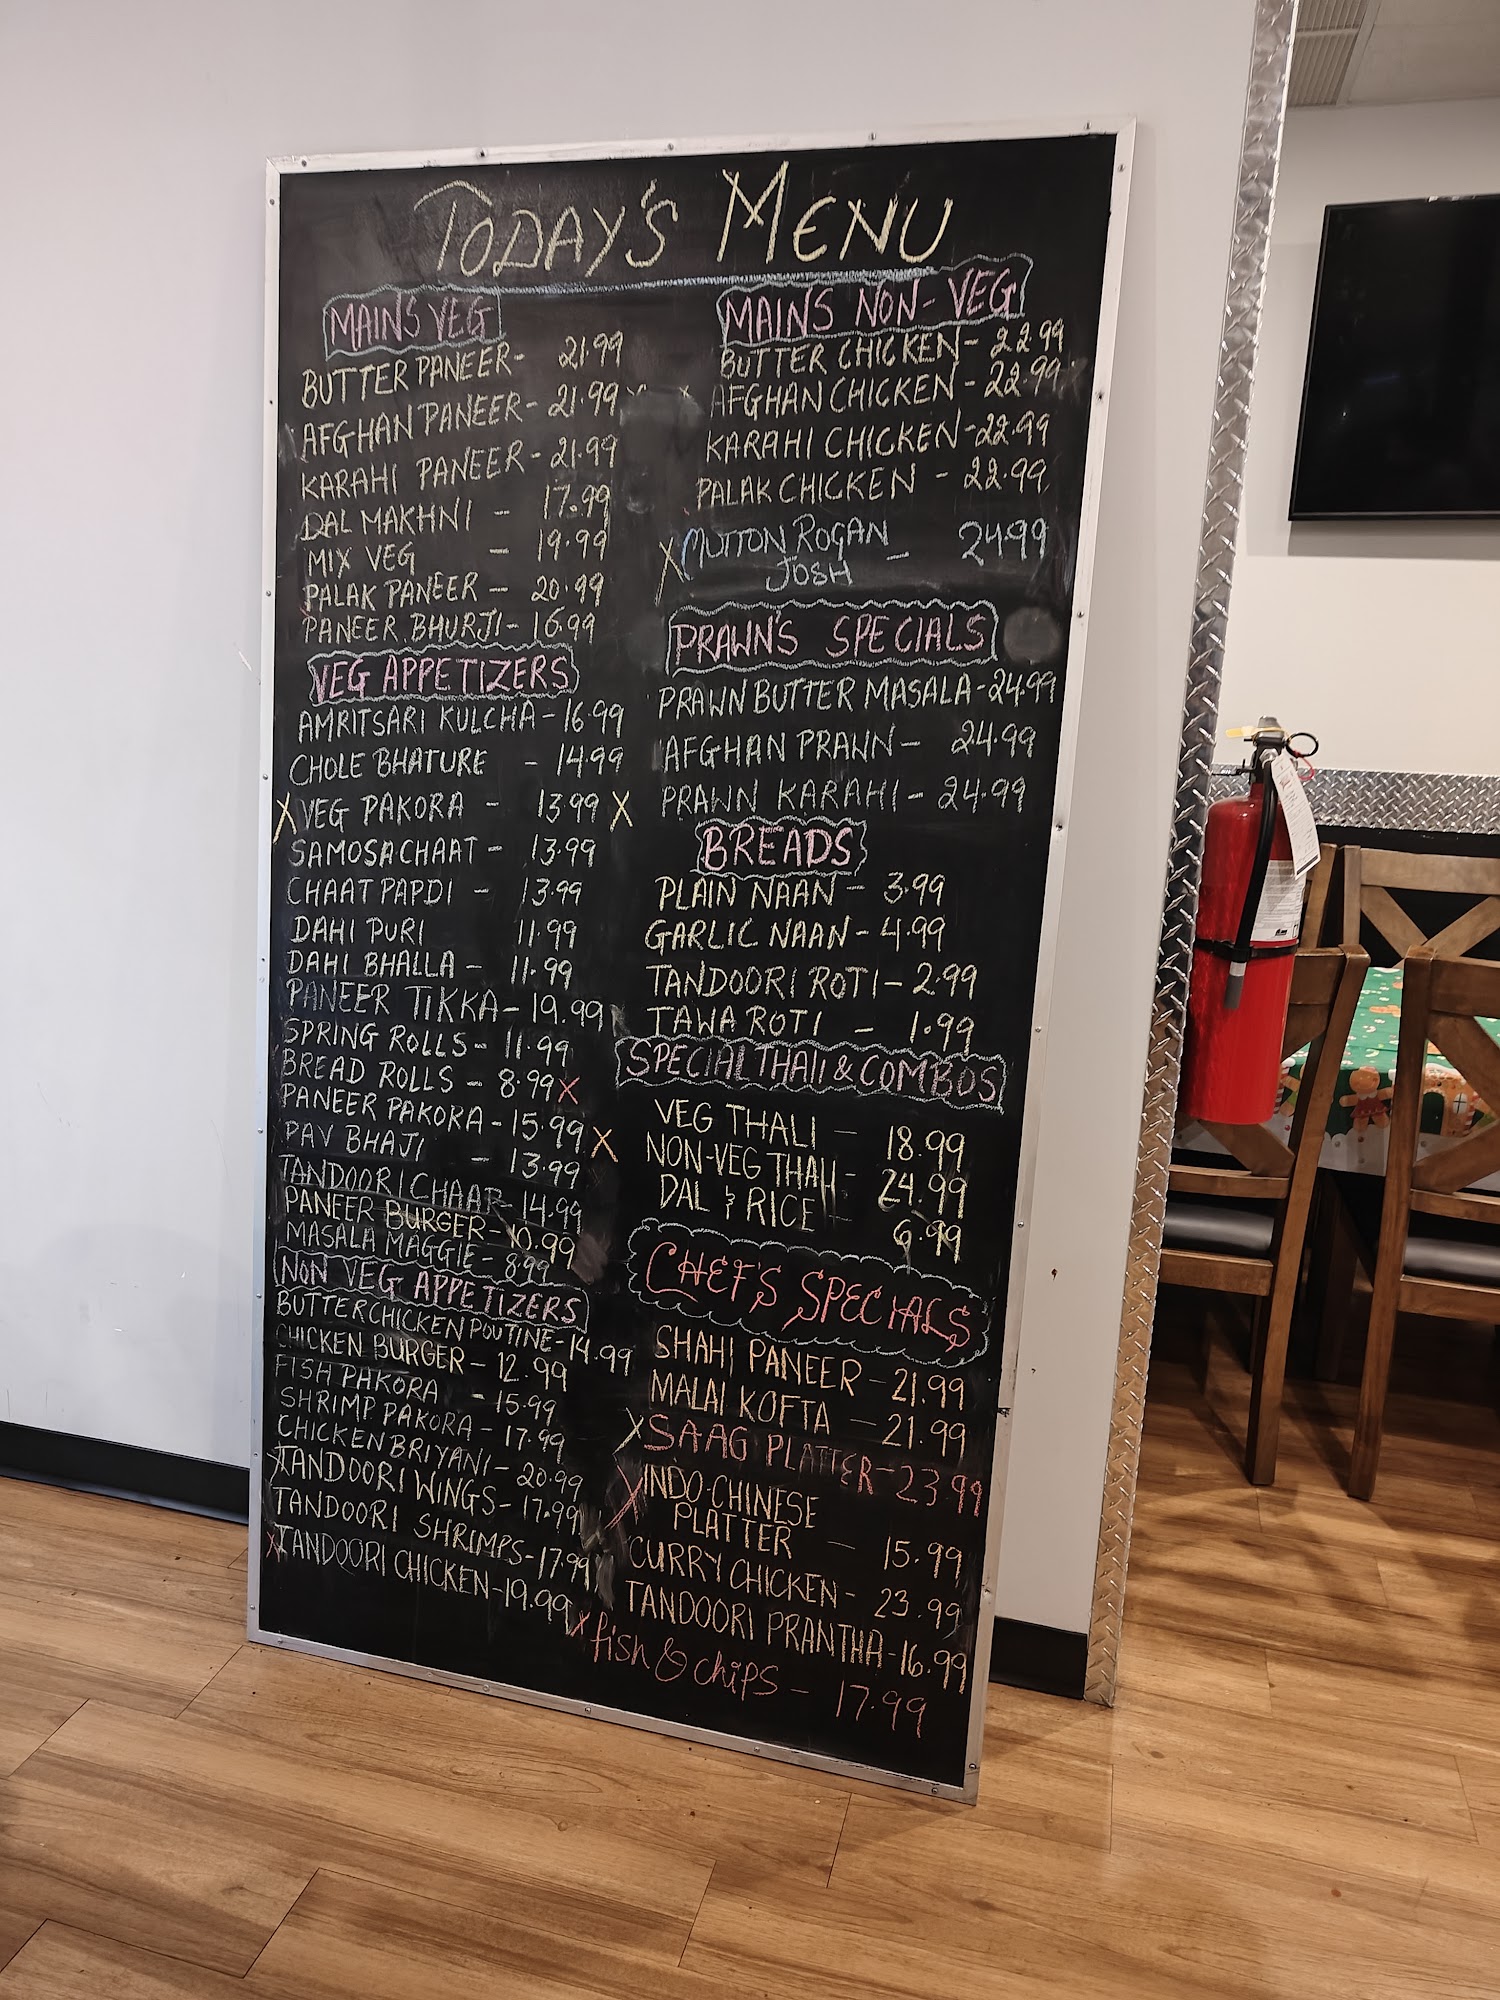 TODAY'S MENU
MAINS VEG
BUTTER PANEER- 21.99
AFGHAN PANEER- 21.99
KARAHI PANEER- 21.99
DAL MAKHNI - 17.99
MIX VEG - 19.99
PALAK PANEER - 20.99
PANEER BHURJI- 16.99
VEG APPETIZERS
AMRITSARI KULCHA - 16.99
CHOLE BHATURE - 14.99
X VEG PAKORA - 13.99 X
SAMOSA CHAAT - 13.99
CHAAT PAPDI - 13.99
DAHI PURI 11.99
DAHI BHALLA - 11.99
PANEER TIKKA - 19.99
SPRING ROLLS - 11.99
BREAD ROLLS - 8.99 X
PANEER PAKORA - 15.99 X
PAV BHAJI - 13.99
TANDOORI CHAAP - 14.99
PANEER BURGER - 10.99
MASALA MAGGIE - 8.99
NON VEG APPETIZERS
BUTTER CHICKEN POUTINE - 14.99
CHICKEN BURGER - 12.99
FISH PAKORA - 15.99
SHRIMP PAKORA - 17.99
CHICKEN BRIYANI - 20.99
X TANDOORI WINGS - 17.99
TANDOORI SHRIMPS - 17.99
X TANDOORI CHICKEN - 19.99
MAINS NON-VEG
BUTTER CHICKEN - 22.99
X AFGHAN CHICKEN - 22.99 X
KARAHI CHICKEN - 22.99
PALAK CHICKEN - 22.99
X MUTTON ROGAN
JOSH - 24.99
PRAWN'S SPECIALS
PRAWN BUTTER MASALA - 24.99
AFGHAN PRAWN - 24.99
PRAWN KARAHI - 24.99
BREADS
PLAIN NAAN - 3.99
GARLIC NAAN - 4.99
TANDOORI ROTI - 2.99
TAWA ROTI - 1.99
SPECIAL THALI & COMBOS
VEG THALI - 18.99
NON-VEG THALI - 24.99
DAL & RICE - 6.99
CHEF'S SPECIALS
SHAHI PANEER - 21.99
MALAI KOFTA - 21.99
X SAAG PLATTER - 23.99
X INDO-CHINESE
PLATTER - 15.99
CURRY CHICKEN - 23.99
TANDOORI PRANTHA - 16.99
X fish & chips - 17.99